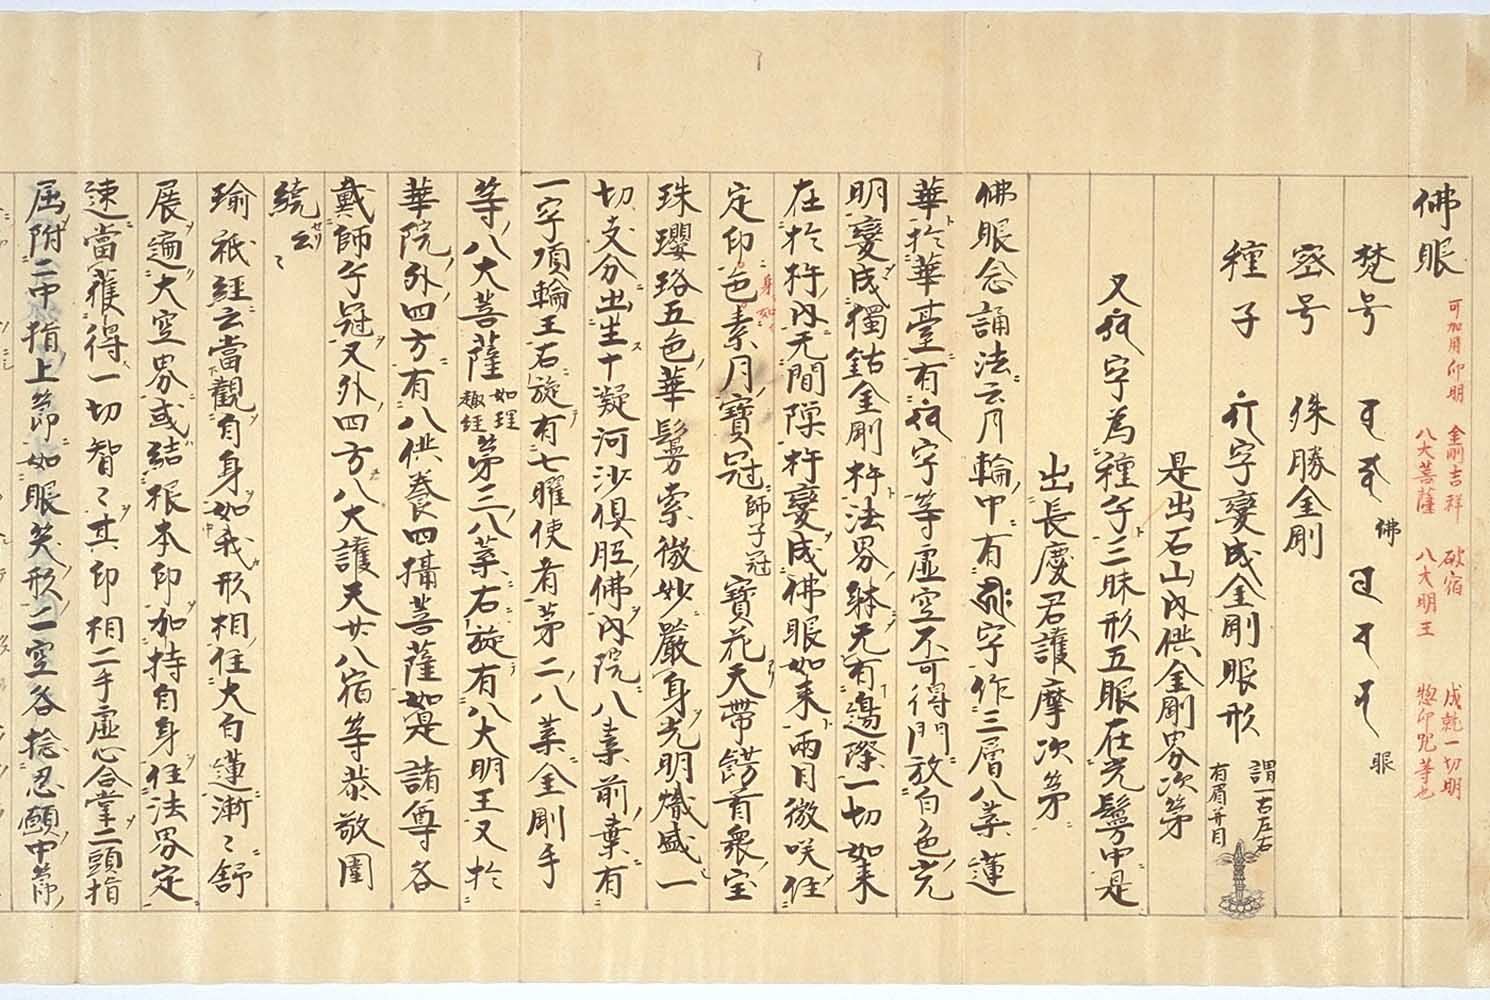 佛眼
可加用印明 金剛吉祥 破宿 成就一切明
八大菩薩 八大明王 惣印咒等也
梵号 佛 眼
密号 殊勝金剛
種子 字變成金剛眼形 謂一古左右
有眉并目
是出石山内供金剛界次第
又字為種子三昧形五眼在光鬘中是
出長慶君護摩次第
佛眼念誦法云月輪中有字作三層八葉蓮
華於華臺有字等虚空不可得門放白色光
明變成獨鈷金剛杵法界躰无有邊際一切如来
在於杵内无間隙杵變成佛眼如来兩目微咲住
定印色素月寶冠師子冠寶花天帶餝首衆宝
身如
珠瓔珞五色華鬘索微妙嚴身光明熾盛一
切支分出生十凝河沙俱胝佛内院八葉前葉有
一字頂輪王右旋有七曜使者第二八葉金剛手
等八大菩薩如理
趣經第三八葉右旋有八大明王又於
華院外四方有八供養四攝菩薩如是諸尊各
戴師子冠又外四方八大護天廿八宿等恭敬圍
繞云〻
瑜祇經云當觀自身如我形相住大白蓮漸〻舒
展遍大空界或結根本印加持自身住法界定
速當獲得一切智〻其印相二手虚心合掌二頭指
屈附二中指上節如眼笑形二空各捻忍願中節